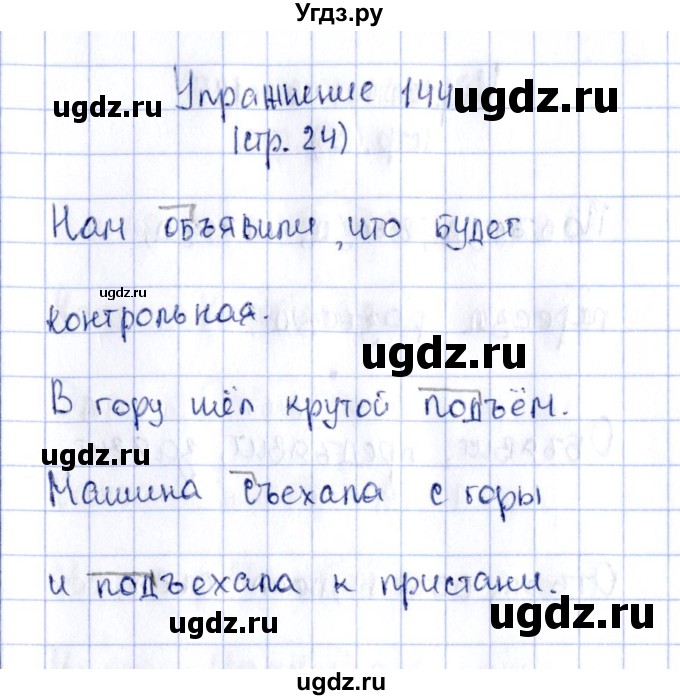 Угдз.ру
ugdz.ru
Упражнение 144 ugdz.ru
(стр. 24)
Нам объявили, что будет
ugdz.ru
контрольная.
ugdz.ru
В гору шёл крутой подъём.
ugdz.ru
Машина съехала с горы
и подъехала к пристани.
ugdz.ru ugdz.ru
ugdz.ru